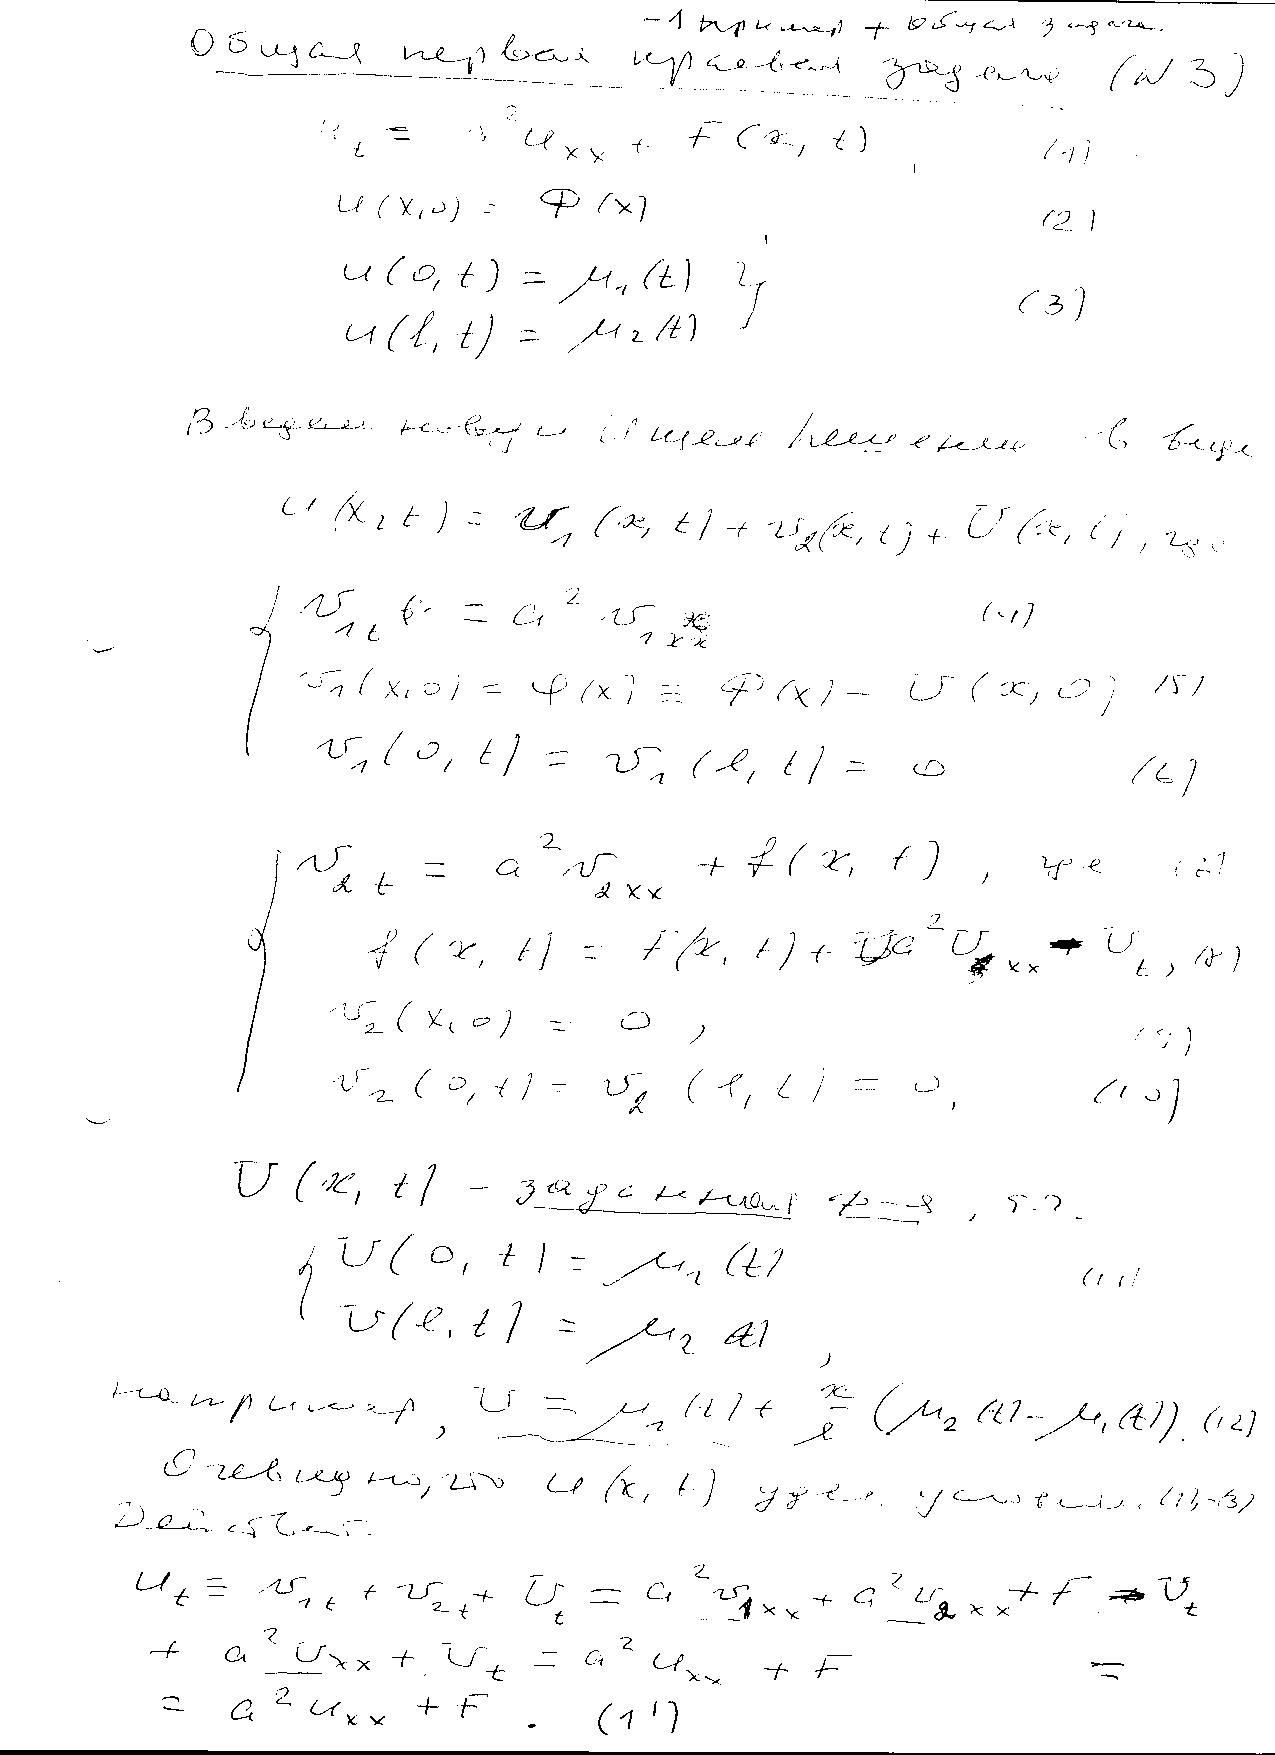 -1 пример + Общая задача.
Общая первая краевая задача (N 3)
u_t = a² u_xx + F(x, t), (1)
u(x,0) = Φ(x) (2)
u(0, t) = μ₁(t) }
u(l, t) = μ₂(t) (3)
Введем новую Ищем решение в виде
u(x, t) = v₁(x, t) + v₂(x, t) + U(x, t), где
{ v₁t = a² v₁xx (4)
v₁(x,0) = φ(x) ≡ Φ(x) - U(x, 0) (5)
v₁(0, t) = v₁(l, t) = 0 (6)
{ v₂t = a² v₂xx + f(x, t), где (7)
f(x, t) = F(x, t) + a² U_xx - U_t, (8)
v₂(x,0) = 0, (9)
v₂(0, t) = v₂(l, t) = 0, (10)
U(x, t) - заданная ф-я, т.ч.
{ U(0, t) = μ₁(t) (11)
U(l, t) = μ₂(t),
например, U = μ₁(t) + x/l (μ₂(t) - μ₁(t)). (12)
Очевидно, что u(x, t) удвл. условиям (1)-(3)
Действит.
u_t = v₁t + v₂t + U_t = a² v₁xx + a² v₂xx + F - U_t
+ a² U_xx + U_t = a² u_xx + F =
= a² u_xx + F. (1')